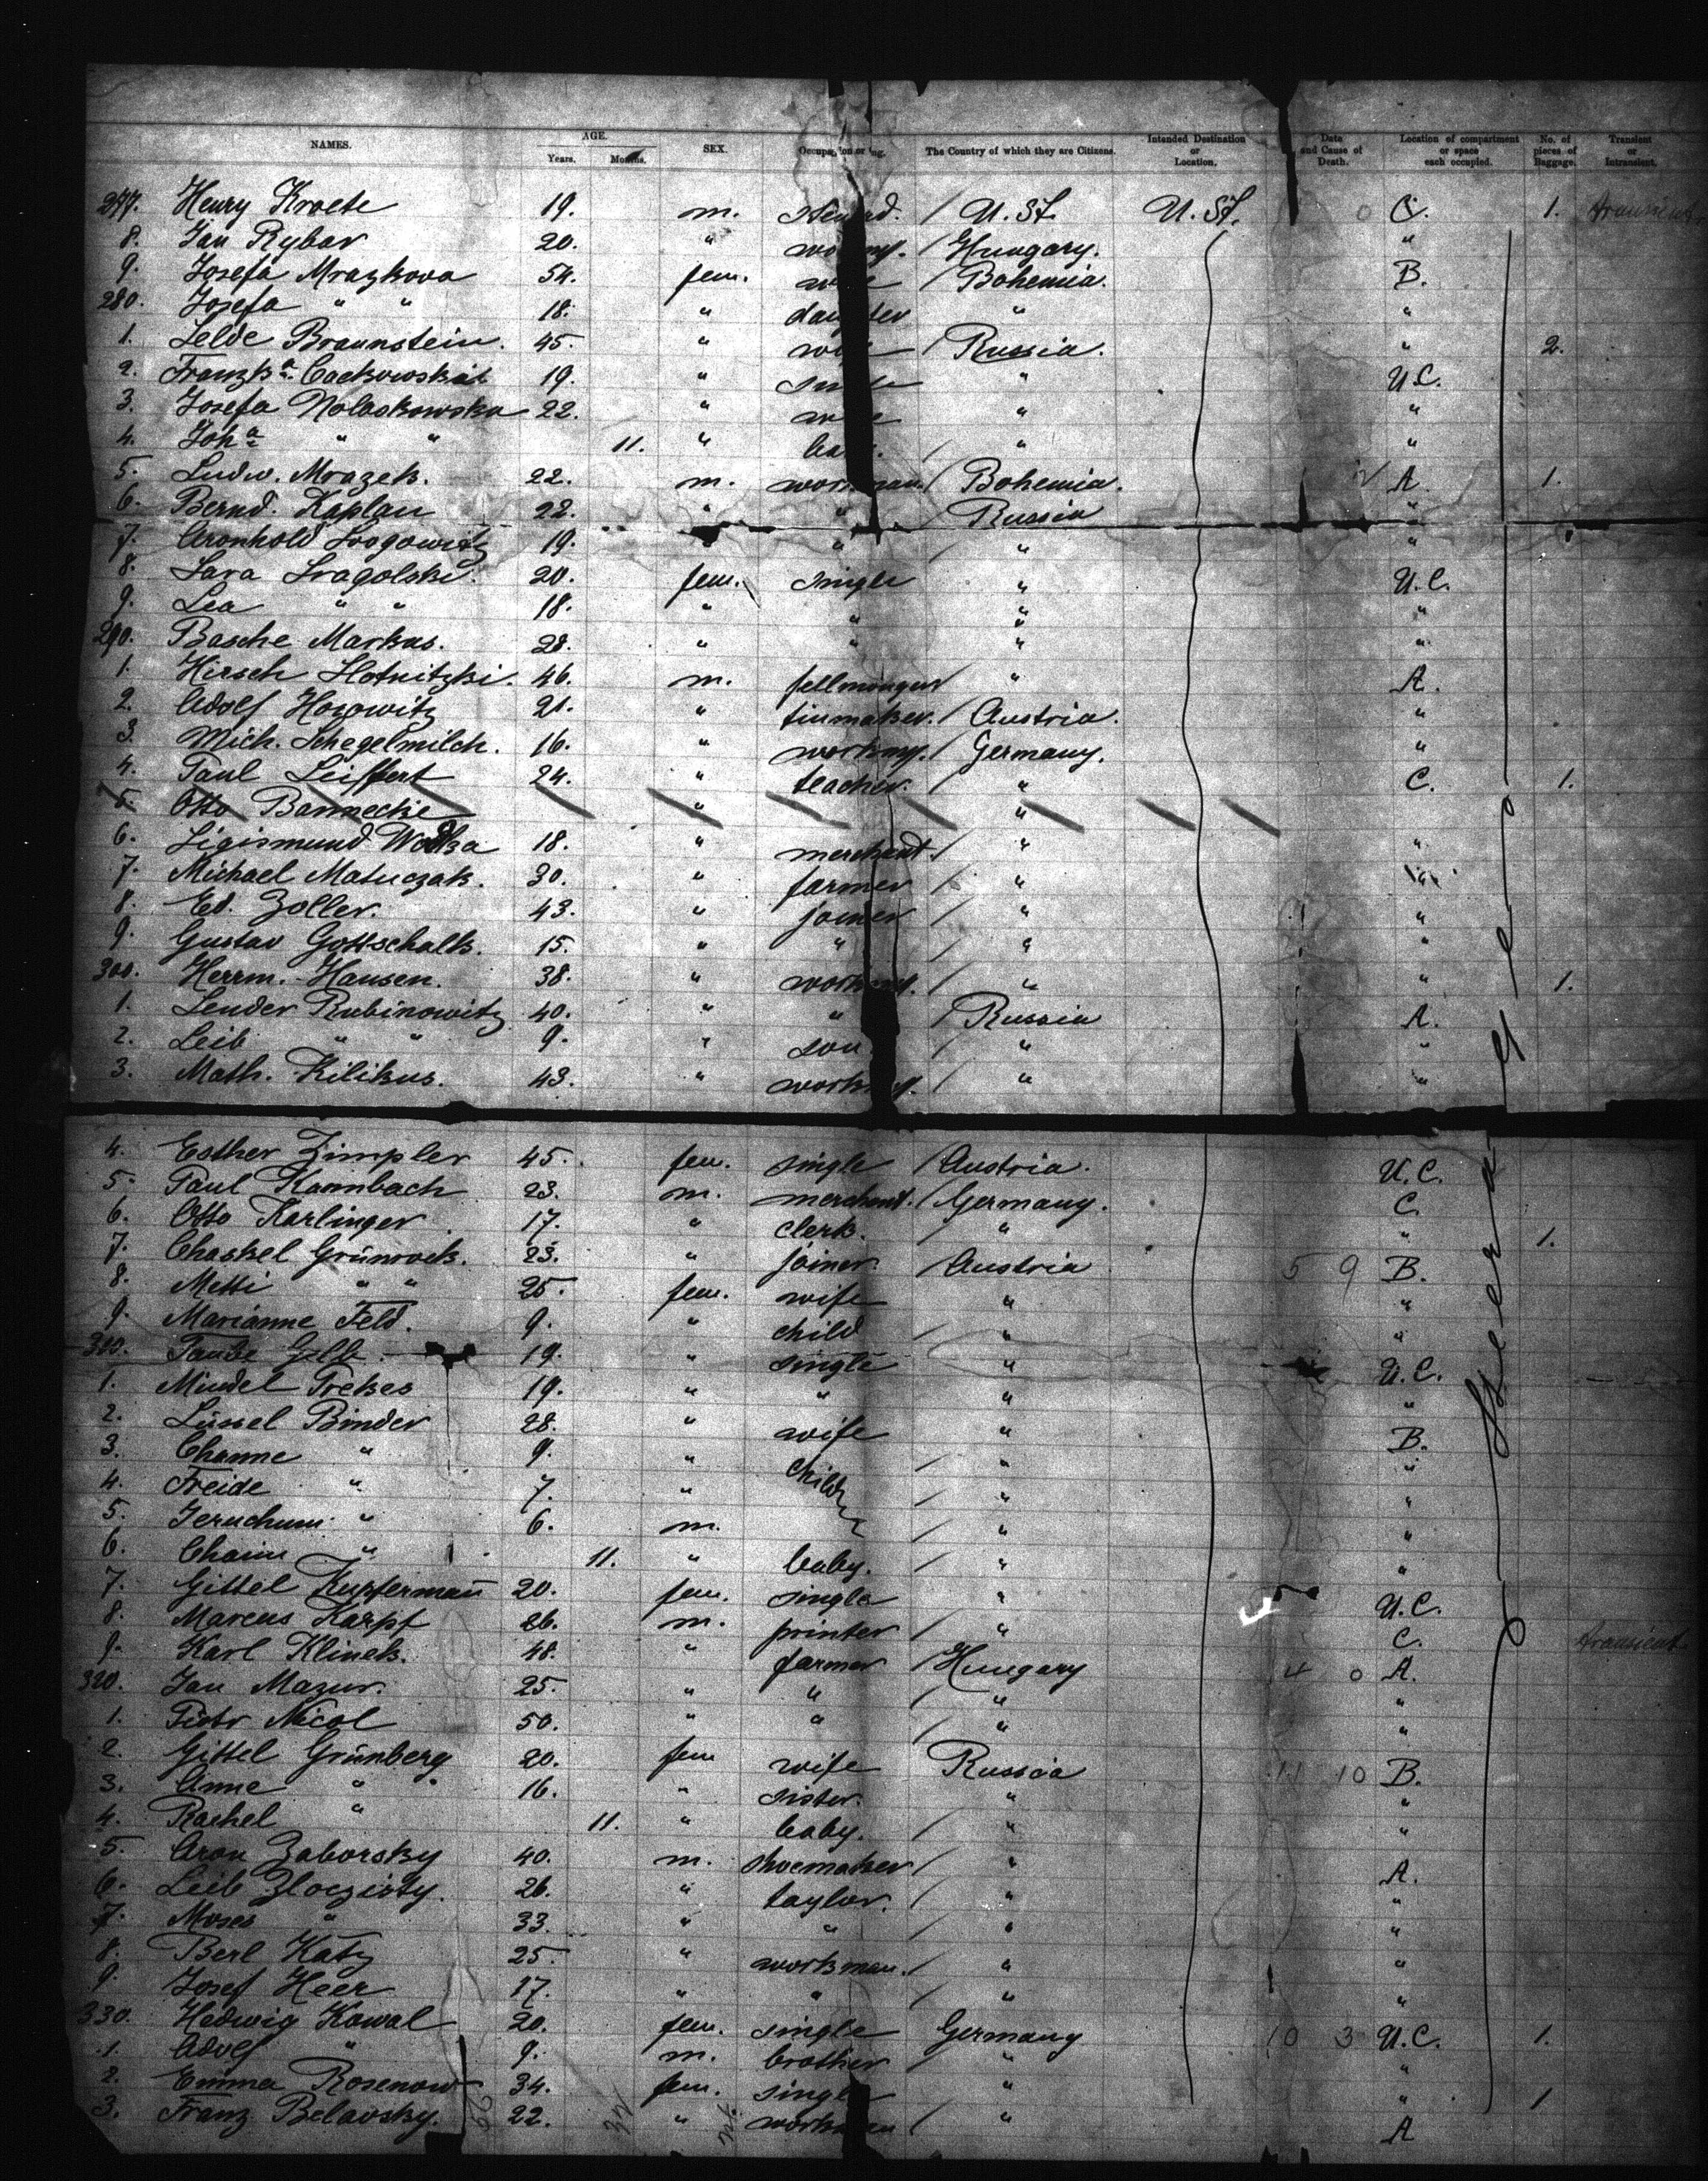 NAMES. AGE. Years. Months. SEX. Occupation or The Country of which they are Citizens. Intended Destination or Location. Date and Cause of Death. Location of compartment or space each occupied. No. of pieces of Baggage. Transient or Intransient.
277. Henry Kroete 19. m. / U. St. U. St. 0 C. 1. transient
8. Jan Rybar 20. " / Hungary. "
9. Josefa Mrazkova 54. fem. / Bohemia. B.
280. Josefa " " 18. " daughter " "
1. Braunstein. 45. " / Russia. " 2.
2. 19. " " U.C.
3. Josefa Nolaskowska 22. " " "
4. Joh a " " 11. " " "
5. Ludw. Mrazek. 22. m. workman. / Bohemia. A. 1.
6. Bernd. Kaplan 22. " " Russia "
7. Aronhold 19. " / " "
8. Sara Sragolski. 20. fem. single " U.C.
9. Lea " " 18. " " " "
290. Basche Markus. 28. " " " "
1. Hirsch Slotnitzki. 46. m. fellmonger / " A.
2. Adolf Horowitz 21. " tinmaker. / Austria. "
3. Mich. Schegelmilch. 16. " / Germany. "
4. Paul Leiffert 24. " teacher. / " C. 1.
5. Otto Bannecke " "
6. Sigismund Wodka 18. " merchant. / " "
7. Michael Matuczak. 30. " farmer / " "
8. Ed. Zoller. 43. " joiner / " "
9. Gustav Gottschalk. 15. " " / " "
300. Herrm. Hansen. 38. " / " " 1.
1. Sender Rubinowitz 40. " " / Russia A.
2. Leib " " 9. " son / " "
3. Math. Kilikus. 43. " / " "
4. Esther Zimpler 45. fem. single / Austria. U.C.
5. Paul Kambach 23. m. merchant. / Germany. C.
6. Otto Karlinger 17. " clerk. / " " 1.
7. Chaskel Grünrock. 23. " joiner / Austria 5 9 B.
8. Metti " " 25. fem. wife " "
9. Marianne Feld. 9. " child / " "
310. Taube Gelb 19. " single " U.C.
1. Mindel Trekses 19. " " " "
2. Lüssel Binder 28. " wife " B.
3. Channe " 9. " children / " "
4. Freide " 7. " / " "
5. Jeruchum " 6. m. / " "
6. Chaim " 11. " baby. / " "
7. Gittel Kupferman 20. fem. single " U.C.
8. Marcus Karpf 26. m. printer / " C. transient
9. Karl Klinek. 48. " farmer / Hungary 4 0 A.
320. Jan Mazur. 25. " " / " "
1. Piotr Nicol 50. " " / " "
2. Gittel Grünberg 20. fem wife Russia 11 10 B.
3. Anne " " 16. " sister. " "
4. Rachel " 11. " baby. / " "
5. Aron Zaborsky 40. m. shoemaker / " A.
6. Leib Zloczisty. 26. " taylor. / " "
7. Moses " 33. " " / " "
8. Berl Katz 25. " workman. / " "
9. Josef Heer 17. " " / " "
330. Hedwig Kowal 20. fem. single Germany 10 3 U.C. 1.
1. Adolf " 9. m. brother / " "
2. Emma Rosenow 34. fem. single " " 1
3. Franz Belavsky. 22. " workman / " A